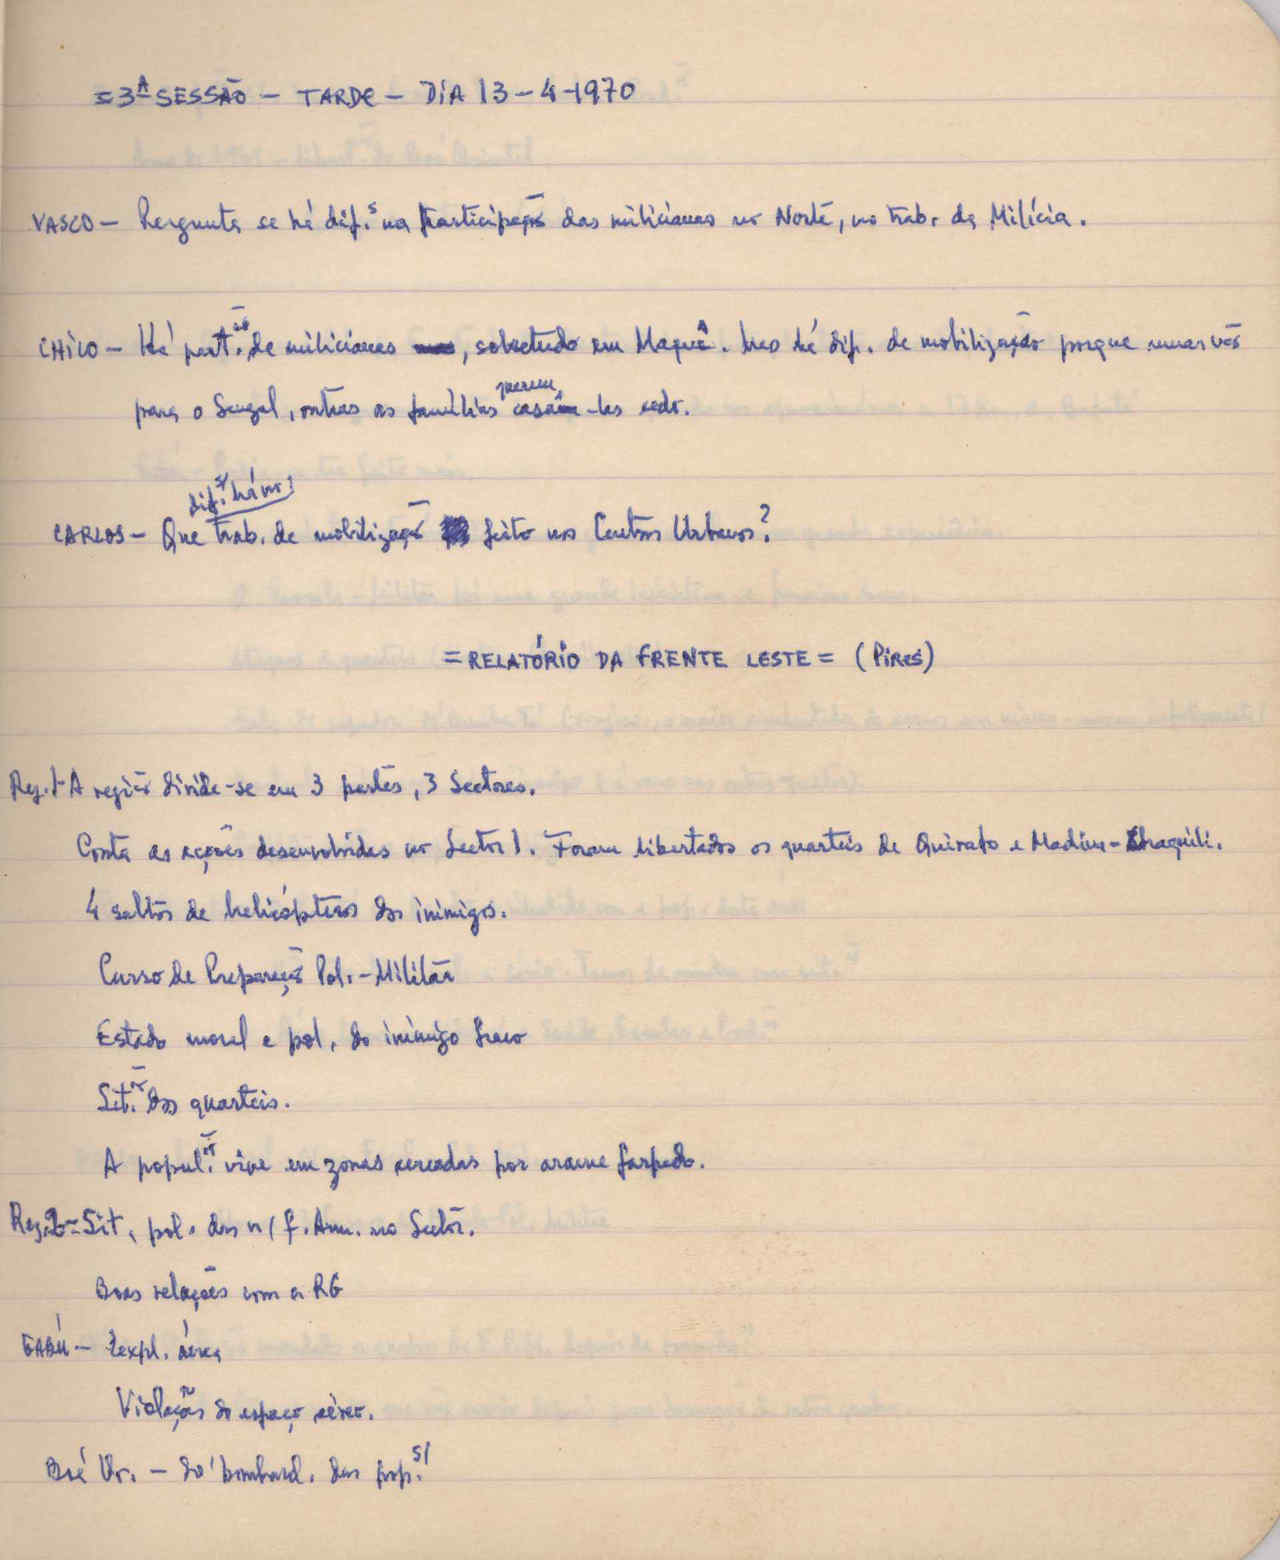 = 3ª SESSÃO - TARDE - DIA 13-4-1970
VASCO - Pergunta se há dif.s na participação das milicianas no Norte, no trab. da Milícia.
CHICO - Há part.ão de milicianas, sobretudo em Maquê. Mas há dif. de mobilização porque umas vão
para o Senegal, outras as famílias querem casá-las cedo.
dif.s há no
CARLOS - Que trab. de mobilização feito nos Centros Urbanos?
= RELATÓRIO DA FRENTE LESTE = (PIRES)
Reg. 1 - A região divide-se em 3 partes, 3 Sectores.
Conta as acções desenvolvidas no Sector 1. Foram libertados os quarteis de Quirafo e Madina-
4 saltos de helicópteros dos inimigos.
Curso de Preparação Pol.-Militar
Estado moral e pol. do inimigo fraco
Sit.ão dos quarteis.
A popul.ão vive em zonas cercadas por arame farpado.
Reg. 2 - Sit. pol. das n/ f. Arm. no Sector.
Boas relações com a RG
GABÚ - Expl. aérea
Violação do espaço aéreo.
Boé Or. - Só bombard. das pop.s/